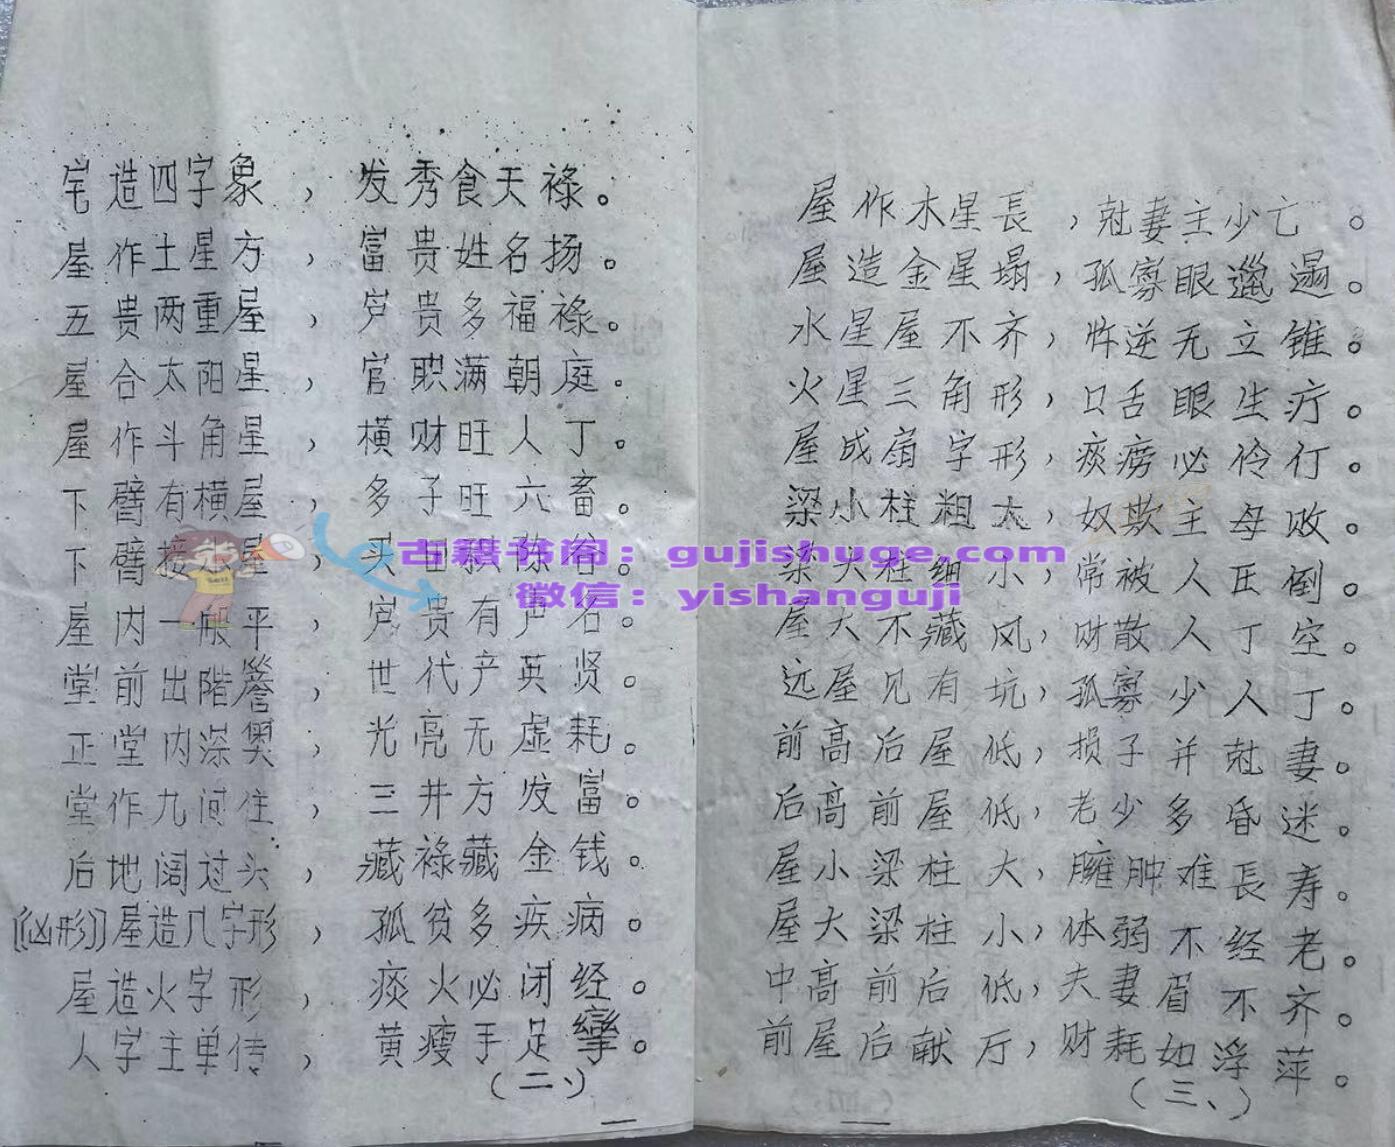 宅造四字象，发秀食天禄。
屋作土星方，富贵姓名扬。
五贵两重屋，㝎贵多福禄。
屋合太阳星，官职满朝庭。
屋作斗角星，横财旺人丁。
下臂有横屋，多子旺六畜。
下臂接水屋，买田积陈谷。
屋内一般平，贵有声名。
堂前出階簷，世代产英贤。
正堂内深奥，光亮无虚耗。
堂作九间住，三井方发富。
后地阔过头，藏禄藏金钱。
〔凶形〕屋造八字形，孤贫多疾病。
屋造火字形，痰火必闭经。
人字主单传，黄瘦手足孪。
（二、）
屋作木星長，尅妻主少亡。
屋造金星塌，孤寡眼邋遢。
水星屋不齐，忤逆无立锥。
火星三角形，口舌眼生疔。
屋成扇字形，痰痨必伶仃。
梁小柱粗大，奴欺主母败。
梁大柱细小，常被人压倒。
屋大不藏风，财散人丁空。
远屋见有坑，孤寡少人丁。
前高后屋低，损子并尅妻。
后高前屋低，老少多昏迷。
屋小梁柱大，臃肿难長寿。
屋大梁柱小，体弱不经老。
中高前后低，夫妻眉不齐。
前屋后献厅，财耗如浮萍。
（三、）
古籍书阁：gujishuge.com
微信：yishanguji